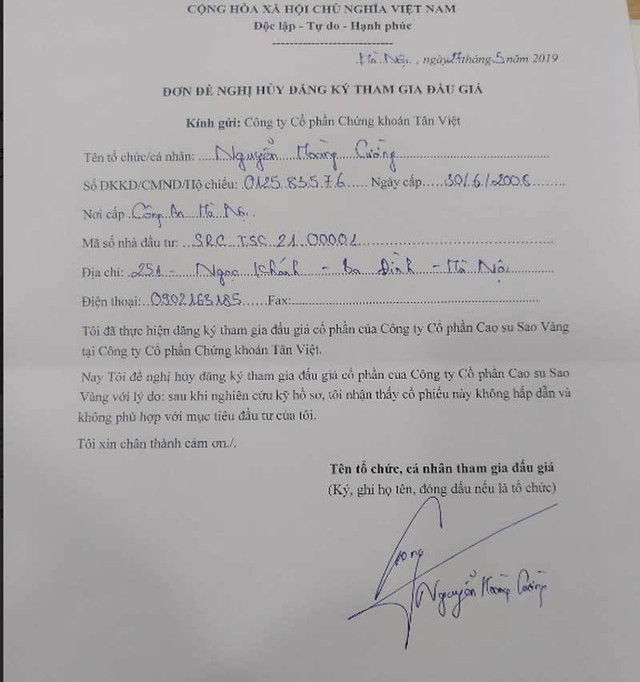 CỘNG HÒA XÃ HỘI CHỦ NGHĨA VIỆT NAM
Độc lập - Tự do - Hạnh phúc
Hà Nội, ngày 27 tháng 5 năm 2019
ĐƠN ĐỀ NGHỊ HỦY ĐĂNG KÝ THAM GIA ĐẤU GIÁ
Kính gửi: Công ty Cổ phần Chứng khoán Tân Việt
Tên tổ chức/cá nhân: Nguyễn Hoàng Cường
Số ĐKKD/CMND/Hộ chiếu: 012583576 Ngày cấp 30/6/2008
Nơi cấp Công An Hà Nội
Mã số nhà đầu tư: SRC TSC 21 00001
Địa chỉ: 251 - Ngọc Khánh - Ba Đình - Hà Nội
Điện thoại: 0902163185 Fax:
Tôi đã thực hiện đăng ký tham gia đấu giá cổ phần của Công ty Cổ phần Cao su Sao Vàng
tại Công ty Cổ phần Chứng khoán Tân Việt.
Nay Tôi đề nghị hủy đăng ký tham gia đấu giá cổ phần của Công ty Cổ phần Cao su Sao
Vàng với lý do: sau khi nghiên cứu kỹ hồ sơ, tôi nhận thấy cổ phiếu này không hấp dẫn và
không phù hợp với mục tiêu đầu tư của tôi.
Tôi xin chân thành cám ơn./.
Tên tổ chức, cá nhân tham gia đấu giá
(Ký, ghi họ tên, đóng dấu nếu là tổ chức)
Cường
Nguyễn Hoàng Cường